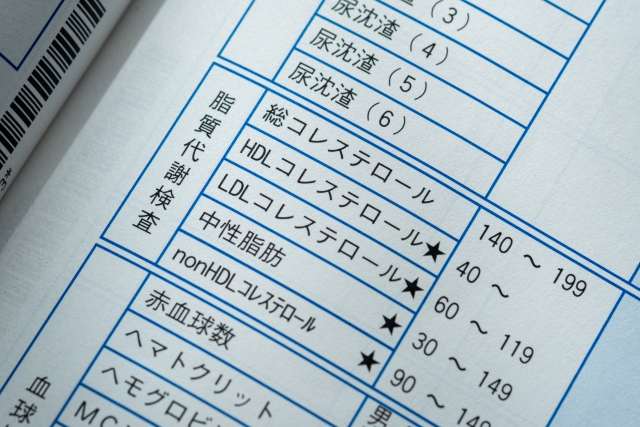 尿沈渣（3）
尿沈渣（4）
尿沈渣（5）
尿沈渣（6）
脂質代謝検査
総コレステロール 140 ～ 199
HDLコレステロール★ 40 ～
LDLコレステロール★ 60 ～ 119
中性脂肪 ★ 30 ～ 149
nonHDLコレステロール ★ 90 ～ 149
血球
赤血球数 男
ヘマトクリット
ヘモグロビ
MC